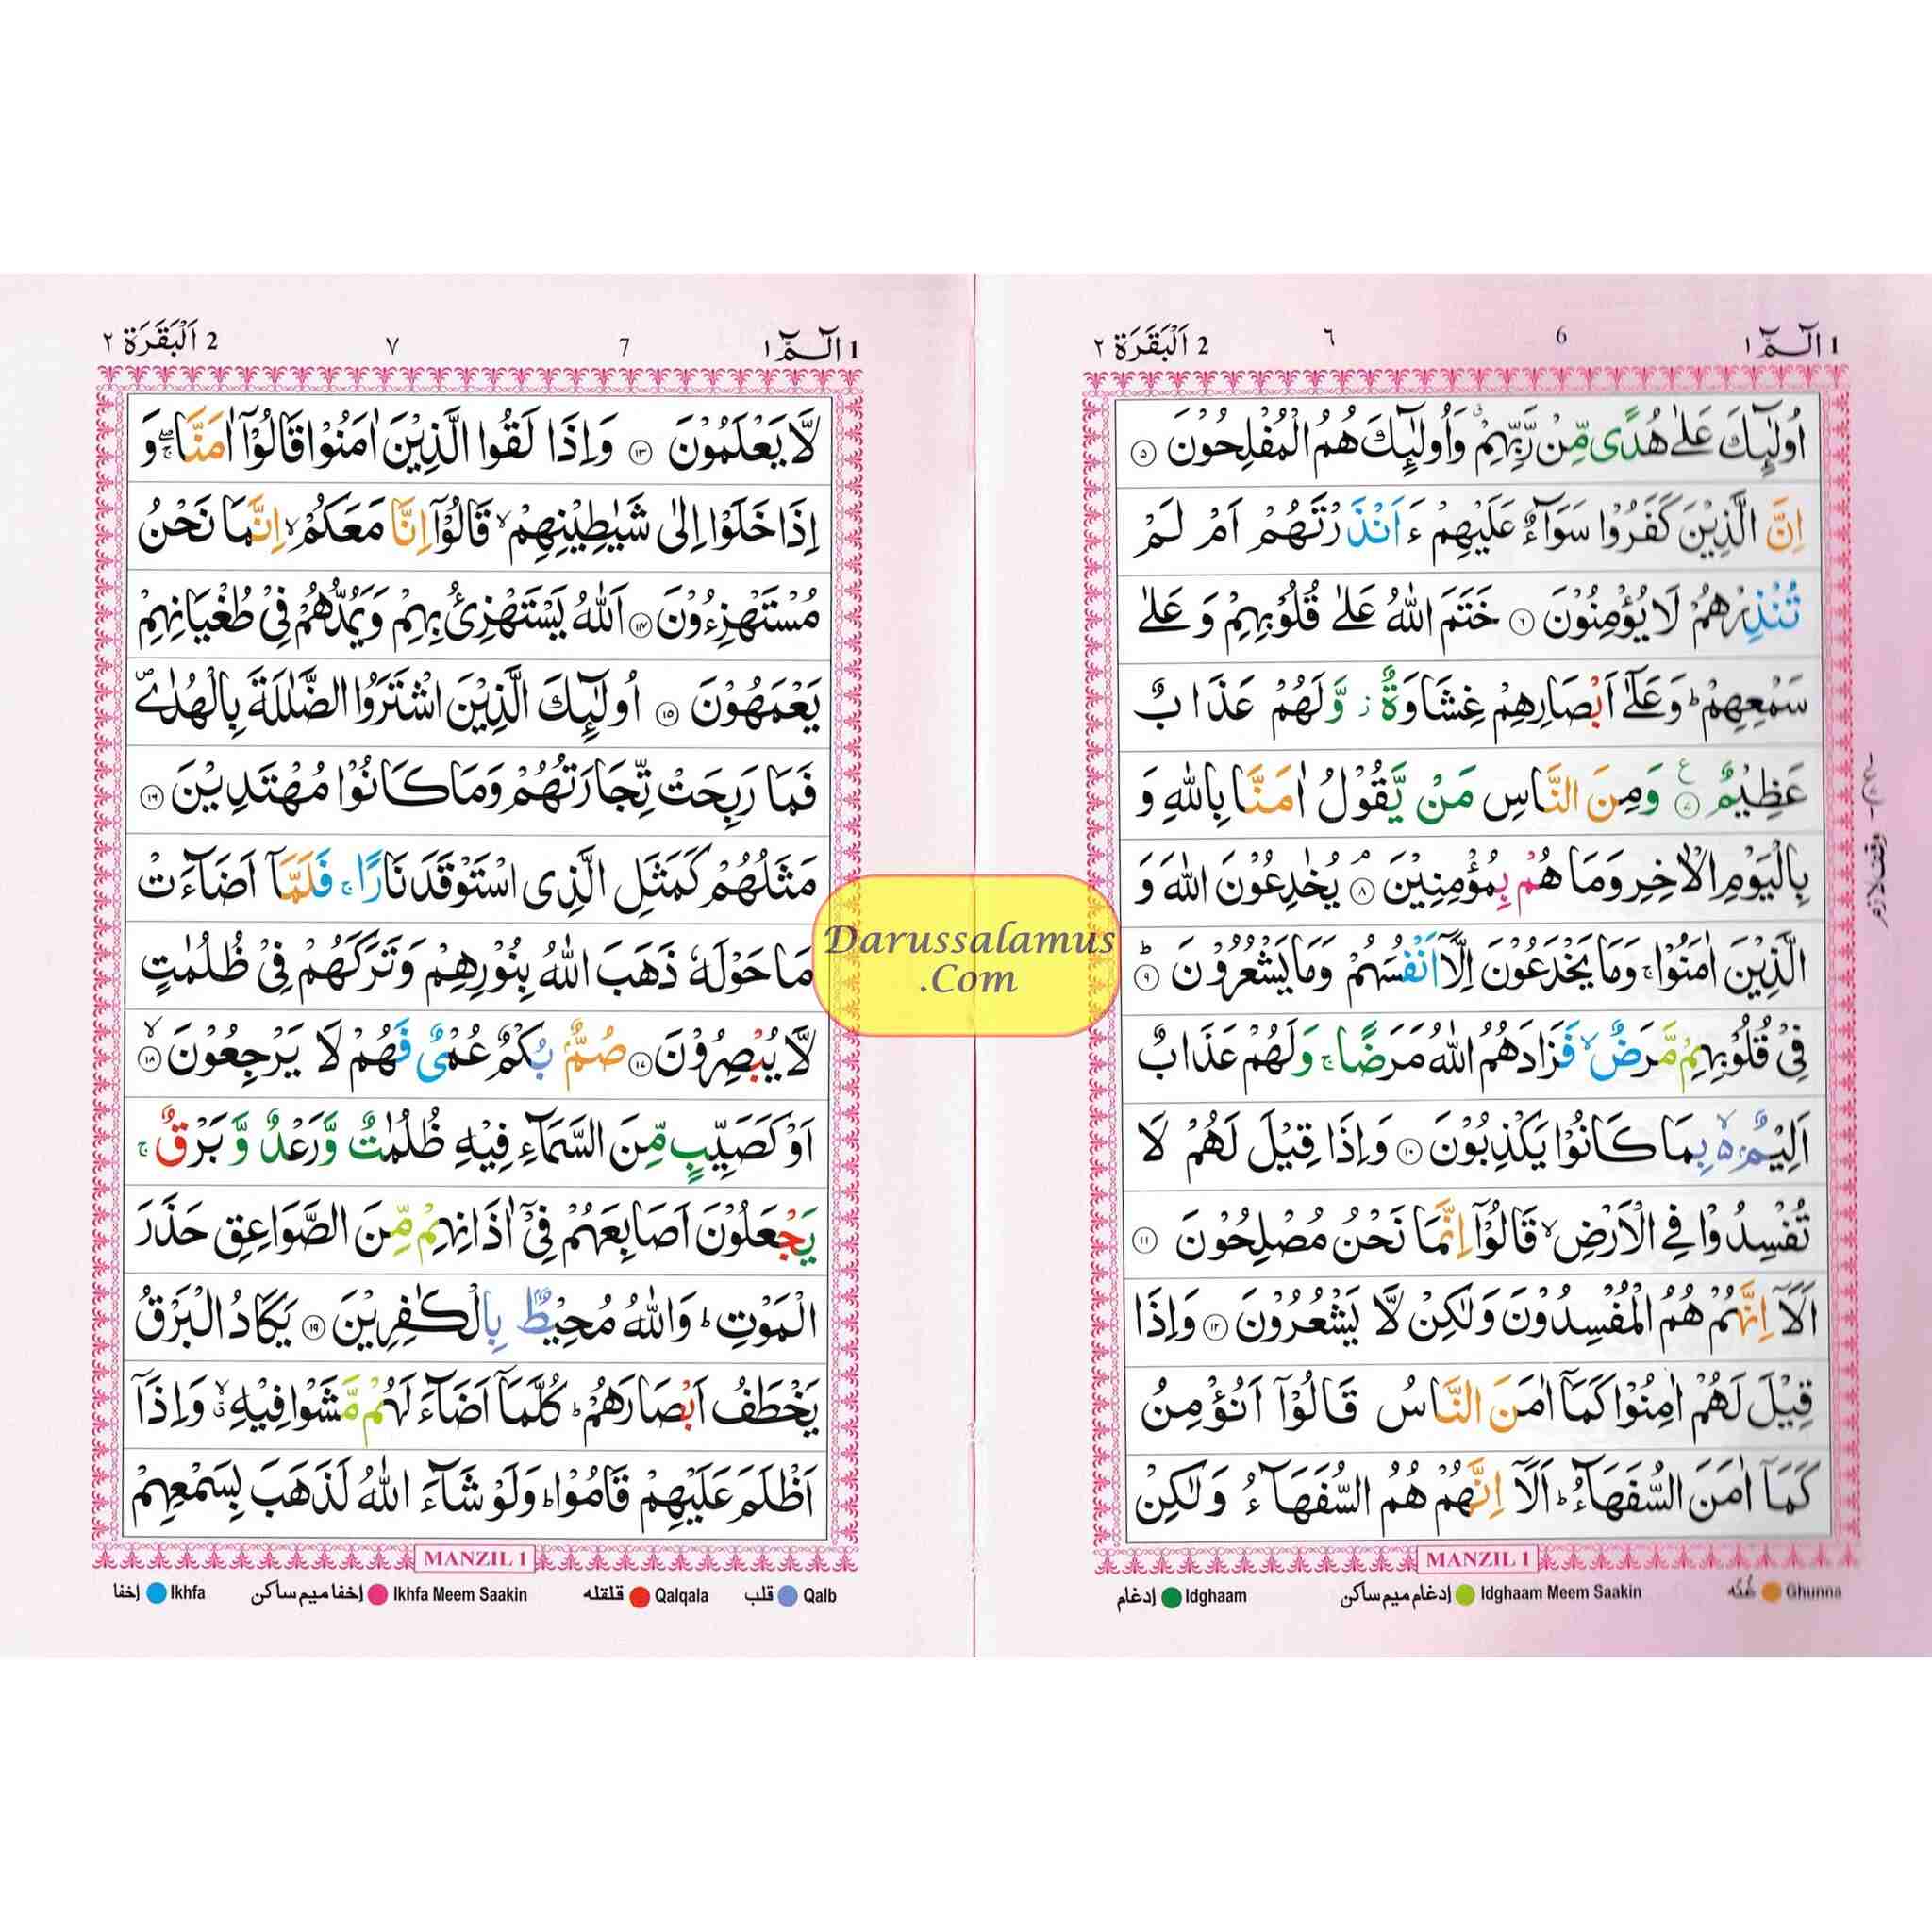 1 الٓـمّٓ ١
6
٦
2 اَلْبَقَرَة ٢
اُولٰٓئِكَ عَلٰى هُدًى مِّنْ رَّبِّهِمْ ۗ وَاُولٰٓئِكَ هُمُ الْمُفْلِحُوْنَ ۝٥
اِنَّ الَّذِيْنَ كَفَرُوْا سَوَآءٌ عَلَيْهِمْ ءَ اَنْذَرْتَهُمْ اَمْ لَمْ
تُنْذِرْهُمْ لَا يُؤْمِنُوْنَ ۝٦ خَتَمَ اللّٰهُ عَلٰى قُلُوْبِهِمْ وَ عَلٰى
سَمْعِهِمْ ؕ وَ عَلٰٓى اَبْصَارِهِمْ غِشَاوَةٌ ز وَّ لَهُمْ عَذَابٌ
عَظِيْمٌ ۝٧ ع وَمِنَ النَّاسِ مَنْ يَّقُوْلُ اٰمَنَّا بِاللّٰهِ وَ
بِالْيَوْمِ الْاٰخِرِ وَمَا هُمْ بِمُؤْمِنِيْنَ ۘ ۝٨ يُخٰدِعُوْنَ اللّٰهَ وَ
الَّذِيْنَ اٰمَنُوْا ۚ وَمَا يَخْدَعُوْنَ اِلَّآ اَنْفُسَهُمْ وَمَا يَشْعُرُوْنَ ؕ ۝٩
فِيْ قُلُوْبِهِمْ مَّرَضٌ ۙ فَزَادَهُمُ اللّٰهُ مَرَضًا ۚ وَلَهُمْ عَذَابٌ
اَلِيْمٌ ۢ ۙ۬ بِمَا كَانُوْا يَكْذِبُوْنَ ۝١٠ وَاِذَا قِيْلَ لَهُمْ لَا
تُفْسِدُوْا فِي الْاَرْضِ ۙ قَالُوْٓا اِنَّمَا نَحْنُ مُصْلِحُوْنَ ۝١١
اَلَآ اِنَّهُمْ هُمُ الْمُفْسِدُوْنَ وَلٰكِنْ لَّا يَشْعُرُوْنَ ۝١٢ وَاِذَا
قِيْلَ لَهُمْ اٰمِنُوْا كَمَآ اٰمَنَ النَّاسُ قَالُوْٓا اَنُؤْمِنُ
كَمَآ اٰمَنَ السُّفَهَآءُ ؕ اَلَآ اِنَّهُمْ هُمُ السُّفَهَآءُ وَلٰكِنْ
MANZIL 1
Ghunna غنّه
Idghaam Meem Saakin إدغام ميم ساكن
Idghaam إدغام
وقف لازم
1 الٓـمّٓ ١
7
٧
2 اَلْبَقَرَة ٢
لَّا يَعْلَمُوْنَ ۝١٣ وَاِذَا لَقُوا الَّذِيْنَ اٰمَنُوْا قَالُوْٓا اٰمَنَّا ۖۚ وَ
اِذَا خَلَوْا اِلٰى شَيٰطِيْنِهِمْ ۙ قَالُوْٓا اِنَّا مَعَكُمْ ۙ اِنَّمَا نَحْنُ
مُسْتَهْزِءُوْنَ ۝١٤ اَللّٰهُ يَسْتَهْزِئُ بِهِمْ وَيَمُدُّهُمْ فِيْ طُغْيَانِهِمْ
يَعْمَهُوْنَ ۝١٥ اُولٰٓئِكَ الَّذِيْنَ اشْتَرَوُا الضَّلٰلَةَ بِالْهُدٰى ۪
فَمَا رَبِحَتْ تِّجَارَتُهُمْ وَمَا كَانُوْا مُهْتَدِيْنَ ۝١٦
مَثَلُهُمْ كَمَثَلِ الَّذِى اسْتَوْقَدَ نَارًا ۚ فَلَمَّآ اَضَآءَتْ
مَا حَوْلَهٗ ذَهَبَ اللّٰهُ بِنُوْرِهِمْ وَتَرَكَهُمْ فِيْ ظُلُمٰتٍ
لَّا يُبْصِرُوْنَ ۝١٧ صُمٌّۢ بُكْمٌ عُمْىٌ فَهُمْ لَا يَرْجِعُوْنَ ۙ ۝١٨
اَوْ كَصَيِّبٍ مِّنَ السَّمَآءِ فِيْهِ ظُلُمٰتٌ وَّرَعْدٌ وَّ بَرْقٌ ۚ
يَجْعَلُوْنَ اَصَابِعَهُمْ فِيْٓ اٰذَانِهِمْ مِّنَ الصَّوَاعِقِ حَذَرَ
الْمَوْتِ ؕ وَاللّٰهُ مُحِيْطٌۢ بِالْكٰفِرِيْنَ ۝١٩ يَكَادُ الْبَرْقُ
يَخْطَفُ اَبْصَارَهُمْ ؕ كُلَّمَآ اَضَآءَ لَهُمْ مَّشَوْا فِيْهِ ۙۗ وَاِذَآ
اَظْلَمَ عَلَيْهِمْ قَامُوْا ؕ وَلَوْ شَآءَ اللّٰهُ لَذَهَبَ بِسَمْعِهِمْ
MANZIL 1
Qalb قلب
Qalqala قلقله
Ikhfa Meem Saakin إخفا ميم ساكن
Ikhfa إخفا
Darussalamus
.Com